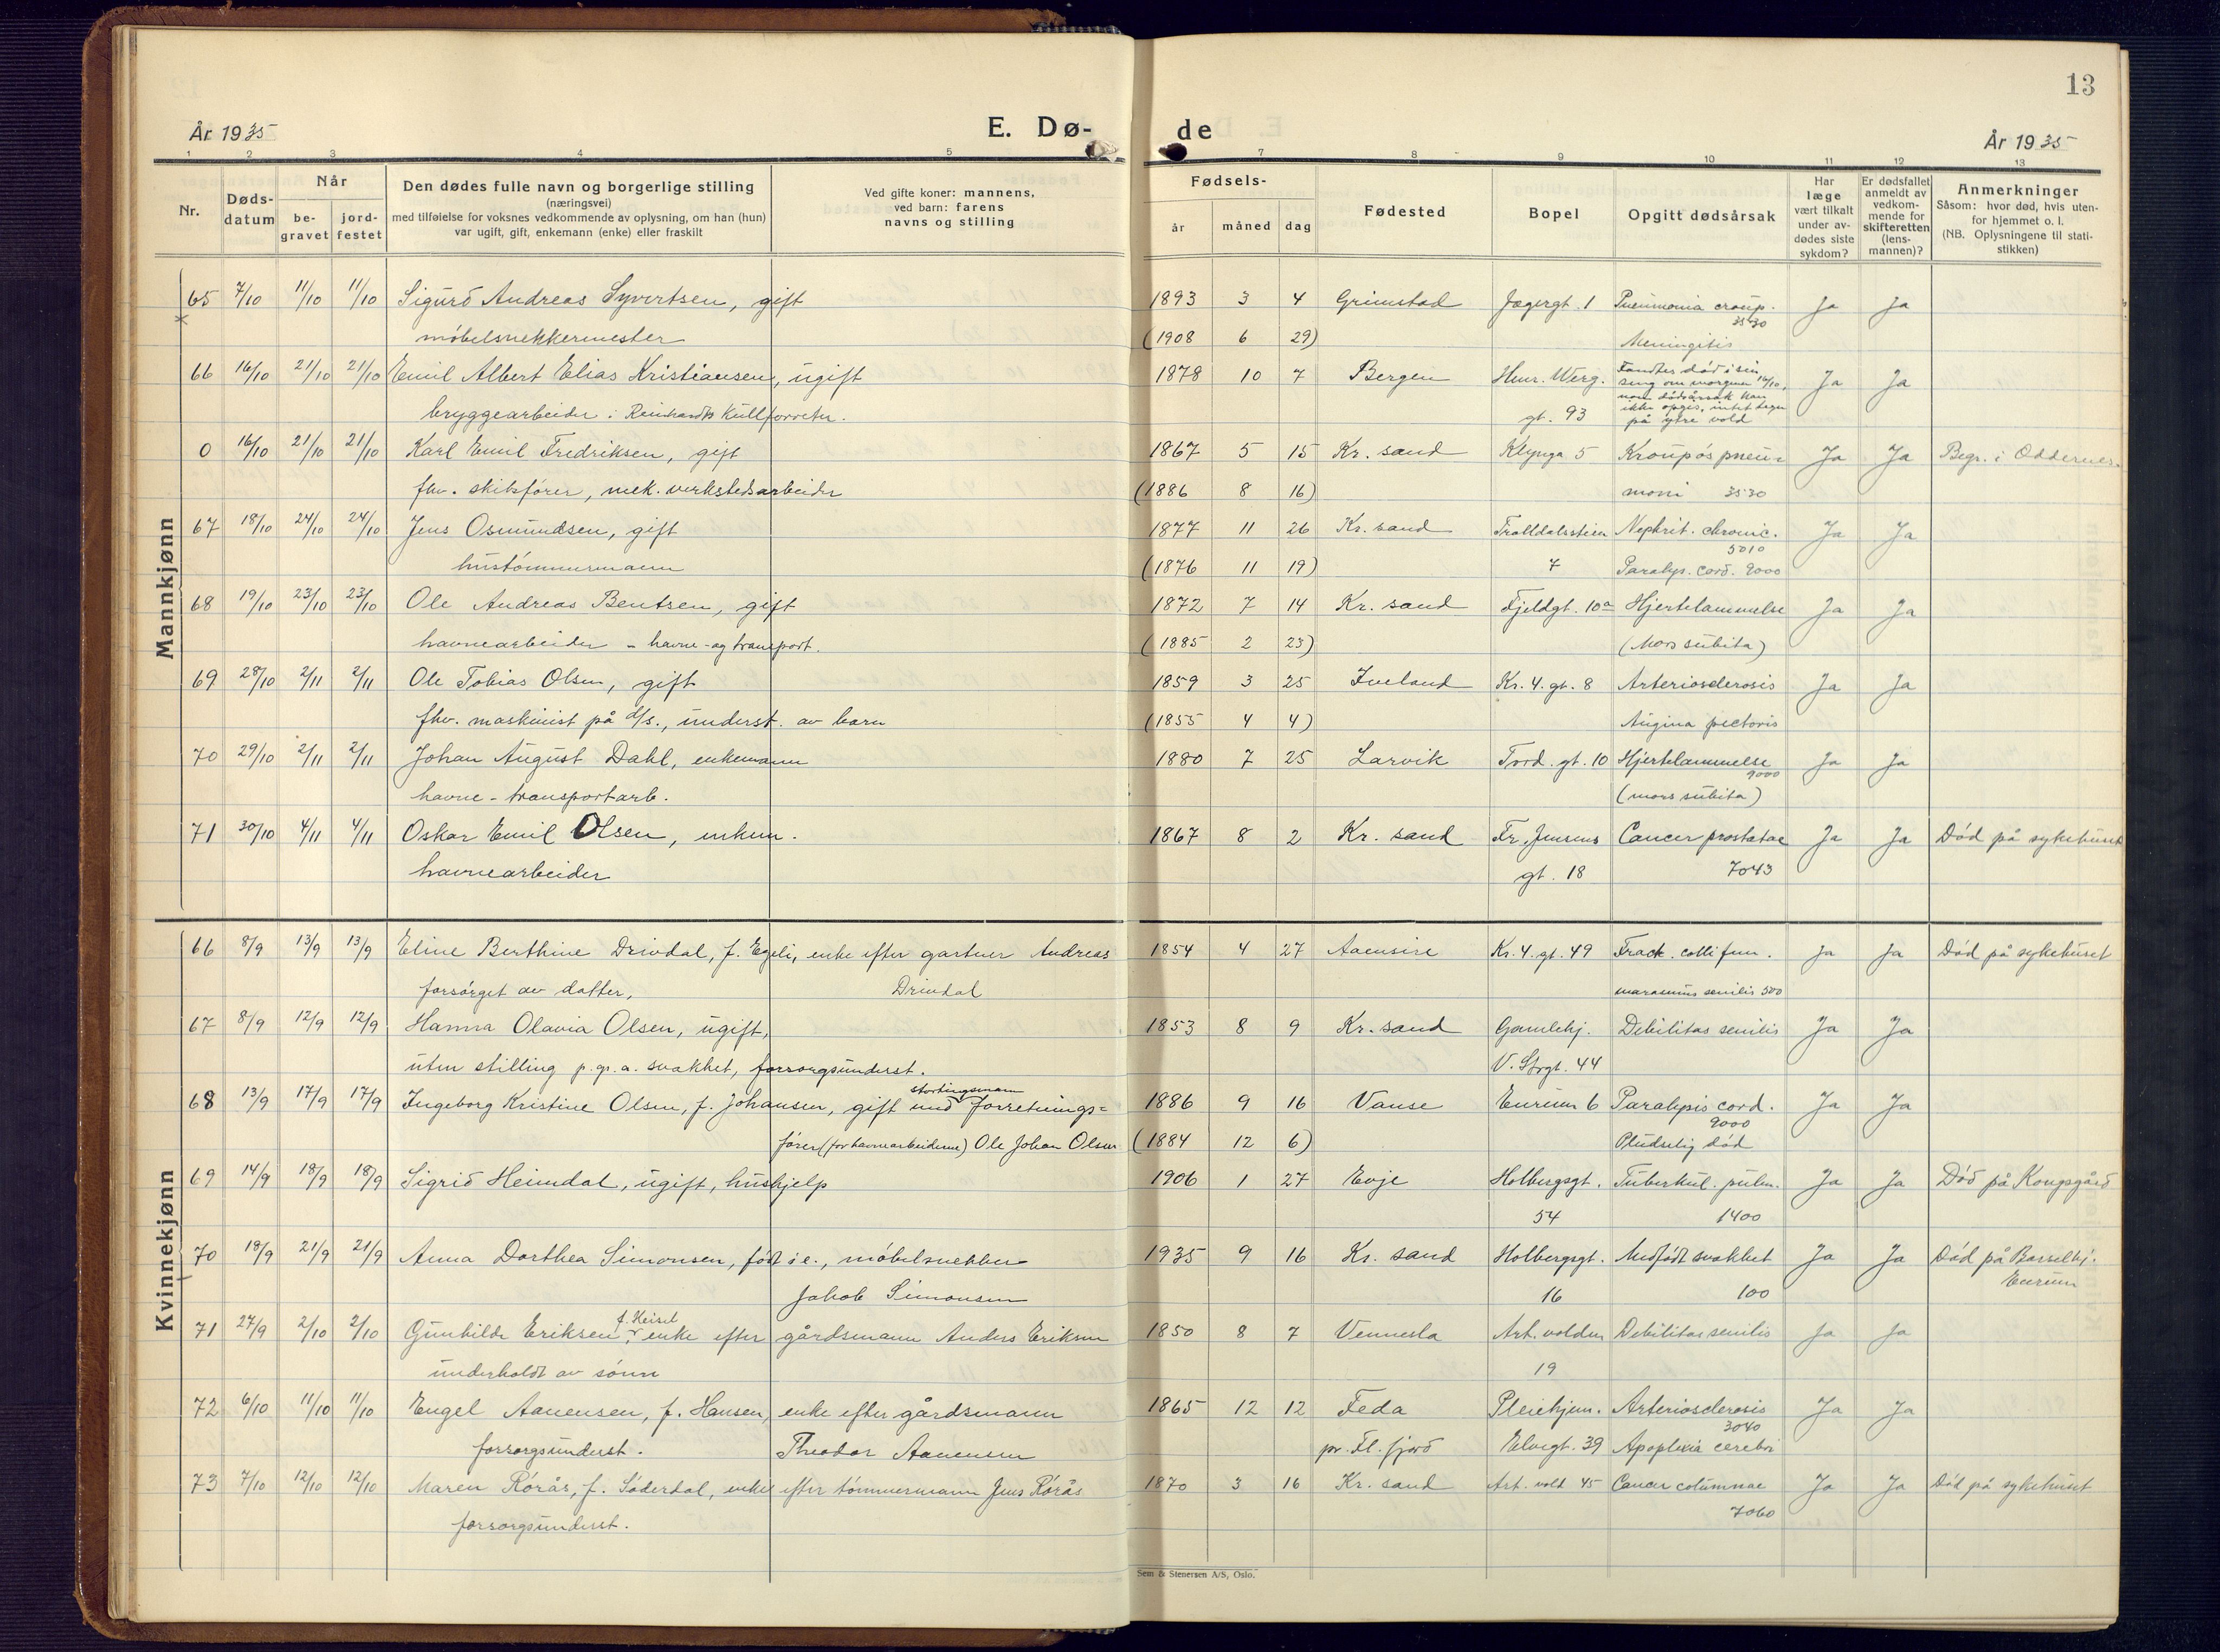 13
År 1935
E. Dø-
de
År 1935
1 2 3 4 5 7 8 9 10 11 12 13
Nr.
Døds-
datum
Når
be-
gravet
jord-
festet
Den dødes fulle navn og borgerlige stilling
(næringsvei)
med tilføielse for voksnes vedkommende av oplysning, om han (hun)
var ugift, gift, enkemann (enke) eller fraskilt
Ved gifte koner: mannens,
ved barn: farens
navns og stilling
Fødsels-
år måned dag
Fødested
Bopel
Opgitt dødsårsak
Har
læge
vært tilkalt
under av-
dødes siste
sykdom?
Er dødsfallet
anmeldt av
vedkom-
mende for
skifteretten
(lens-
mannen)?
Anmerkninger
Såsom: hvor død, hvis uten-
for hjemmet o. l.
(NB. Oplysningene til stati-
stikken)
Mannkjønn
65 7/10 11/10 11/10 Sigurd Andreas Syvertsen, gift 1893 3 4 Grimstad Jægergt. 1 Pneumonia croup. Ja Ja
3530
møbelsnekkermester (1908 6 29) Meningitis
66 16/10 21/10 21/10 Emil Albert Elias Kristiansen, ugift 1878 10 7 Bergen Henr. Werg. Fandtes død i sin Ja Ja
seng om morgenen 16/10,
noen dødsårsak kan
bryggearbeider i Reinhardts Kullforretn. gt. 93 ikke opgis, intet tegn
på ytre vold
0 16/10 21/10 21/10 Karl Emil Fredriksen, gift 1867 5 15 Kr. sand Klynga 5 Kroupøs pneu- Ja Ja Begr. i Oddernes.
fhv. skibsfører, mek. verkstedsarbeider (1886 8 16) moni 3530
67 18/10 24/10 24/10 Jens Osmundsen, gift 1877 11 26 Kr. sand Trolldalsstien Nephrit. chronic. Ja Ja
5010
hustømmermann (1876 11 19) 7 Paralys. cord. 9000
68 19/10 23/10 23/10 Ole Andreas Bentsen, gift 1872 7 14 Kr. sand Fjeldgt. 10a Hjertelammelse Ja Ja
havnearbeider - havne-og transport. (1885 2 23) (Mors subita)
69 28/10 2/11 2/11 Ole Tobias Olsen, gift 1859 3 25 Iveland Kr. 4. gt. 8 Arteriosclerosis Ja Ja
fhv. maskinist på d/s., underst. av barn (1855 4 4) Angina pectoris
70 29/10 2/11 2/11 Johan August Dahl, enkemann 1880 7 25 Larvik Tord. gt. 10 Hjertelammelse Ja Ja
9000
havne-transportarb. (mors subita)
71 30/10 4/11 4/11 Oskar Emil Olsen, enkem. 1867 8 2 Kr. sand Fr. Jensens Cancer prostatae Ja Ja Død på sykehuset
havnearbeider gt. 18 7043
Kvinnekjønn
66 8/9 13/9 13/9 Eline Berthine Drivdal, f. Egeli, enke efter gartner Andreas 1854 4 27 Aaensire Kr. 4. gt. 49 Fract. colli fem. Ja Ja Død på sykehuset
forsørget av datter, Drivdal marasmus senilis 500
67 8/9 12/9 12/9 Hanna Olavia Olsen, ugift, 1853 8 9 Kr. sand Gamlehj. Debilitas senilis Ja Ja
uten stilling p.gr.a. svakhet, forsorgsunderst. V. Strgt. 44
stortingsmann
68 13/9 17/9 17/9 Ingeborg Kristine Olsen, f. Johansen, gift med forretnings- 1886 9 16 Vanse Eurium 6 Paralysis cord. Ja Ja
9000
fører (for havnearbeiderne) Ole Johan Olsen (1884 12 6) Pludselig død
69 14/9 18/9 18/9 Sigrid Heimdal, ugift, hushjelp 1906 1 27 Evje Holbergsgt. Tuberkul. pulm. Ja Ja Død på Kongsgård
54 1400
70 18/9 21/9 21/9 Anna Dorthea Simonsen, født i e., møbelsnekker 1935 9 16 Kr. sand Holbergsgt. Medfødt svakhet Ja Ja Død på Barselhj.
Jakob Simonsen 16 100 Eurium
f. Heisel
71 27/9 2/10 2/10 Gunhilde Eriksen, enke efter gårdsmann Anders Eriksen 1850 8 7 Vennesla Art. volden Debilitas senilis Ja Ja
underholdt av sønn 19
72 6/10 11/10 11/10 Engel Aanensen, f. Hansen, enke efter gårdsmann 1865 12 12 Feda Pleiehjem. Arteriosclerosis Ja Ja
3040
forsorgsunderst. Theodor Aanensen pr. Fl. fjord Elvegt. 39 Apoplexia cerebri
73 7/10 12/10 12/10 Maren Rørås, f. Söderdal, enke efter tømmermann Jens Rørås 1870 3 16 Kr. sand Art. vold 45 Cancer columnae Ja Ja Død på sykehuset
forsorgsunderst. 7060
Sem & Stenersen A/S, Oslo.